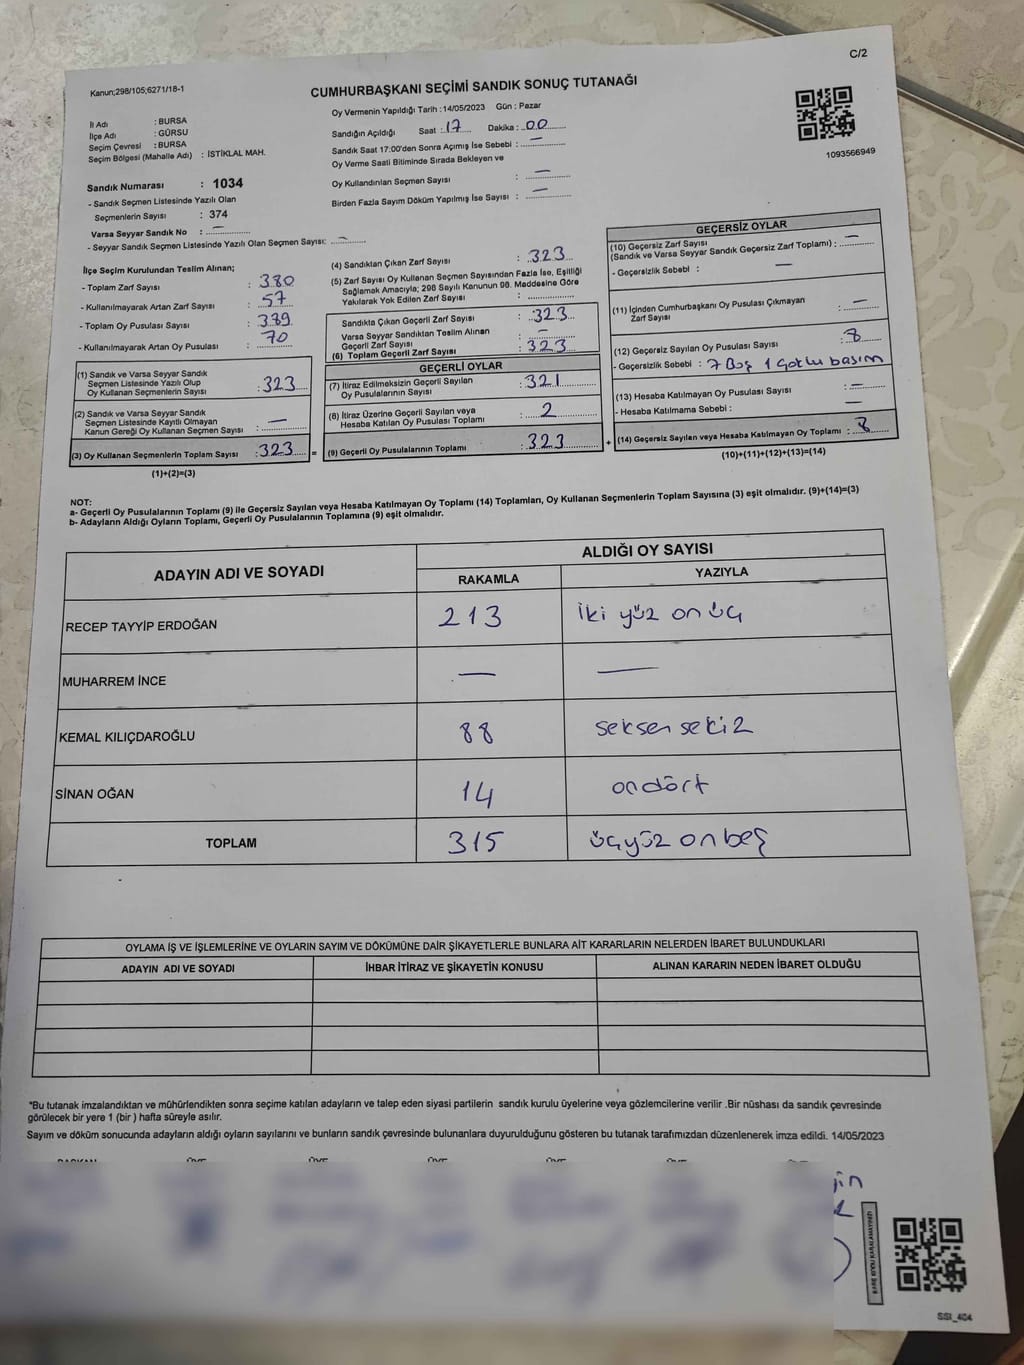 C/2
Kanun;298/105;6271/18-1
CUMHURBAŞKANI SEÇİMİ SANDIK SONUÇ TUTANAĞI
Oy Vermenin Yapıldığı Tarih : 14/05/2023 Gün : Pazar
İl Adı : BURSA
İlçe Adı : GÜRSU
Seçim Çevresi : BURSA
Seçim Bölgesi (Mahalle Adı) : İSTİKLAL MAH.
Sandığın Açıldığı Saat : 17 Dakika : 00
Sandık Saat 17:00'den Sonra Açımış İse Sebebi : —
Oy Verme Saati Bitiminde Sırada Bekleyen ve
Oy Kullandırılan Seçmen Sayısı : —
Birden Fazla Sayım Döküm Yapılmış İse Sayısı : —
1093566949
Sandık Numarası : 1034
- Sandık Seçmen Listesinde Yazılı Olan
Seçmenlerin Sayısı : 374
Varsa Seyyar Sandık No : —
- Seyyar Sandık Seçmen Listesinde Yazılı Olan Seçmen Sayısı: —
İlçe Seçim Kurulundan Teslim Alınan;
- Toplam Zarf Sayısı : 380
- Kullanılmayarak Artan Zarf Sayısı : 57
- Toplam Oy Pusulası Sayısı : 389
- Kullanılmayarak Artan Oy Pusulası : 70
(1) Sandık ve Varsa Seyyar Sandık
Seçmen Listesinde Yazılı Olup
Oy Kullanan Seçmenlerin Sayısı : 323
(2) Sandık ve Varsa Seyyar Sandık
Seçmen Listesinde Kayıtlı Olmayan
Kanun Gereği Oy Kullanan Seçmen Sayısı : —
(3) Oy Kullanan Seçmenlerin Toplam Sayısı : 323 =
(1)+(2)=(3)
(4) Sandıktan Çıkan Zarf Sayısı : 323
(5) Zarf Sayısı Oy Kullanan Seçmen Sayısından Fazla İse, Eşitliği
Sağlamak Amacıyla; 298 Sayılı Kanunun 98. Maddesine Göre
Yakılarak Yok Edilen Zarf Sayısı :
Sandıkta Çıkan Geçerli Zarf Sayısı : 323
Varsa Seyyar Sandıktan Teslim Alınan
Geçerli Zarf Sayısı : —
(6) Toplam Geçerli Zarf Sayısı : 323
GEÇERLİ OYLAR
(7) İtiraz Edilmeksizin Geçerli Sayılan
Oy Pusulalarının Sayısı : 321
(8) İtiraz Üzerine Geçerli Sayılan veya
Hesaba Katılan Oy Pusulası Toplamı : 2
(9) Geçerli Oy Pusulalarının Toplamı : 323 +
GEÇERSİZ OYLAR
(10) Geçersiz Zarf Sayısı
(Sandık ve Varsa Seyyar Sandık Geçersiz Zarf Toplamı) : —
- Geçersizlik Sebebi : —
(11) İçinden Cumhurbaşkanı Oy Pusulası Çıkmayan
Zarf Sayısı : —
(12) Geçersiz Sayılan Oy Pusulası Sayısı : 8
- Geçersizlik Sebebi : 7 Boş 1 Çoklu basım
(13) Hesaba Katılmayan Oy Pusulası Sayısı : —
- Hesaba Katılmama Sebebi : —
(14) Geçersiz Sayılan veya Hesaba Katılmayan Oy Toplamı : 8
(10)+(11)+(12)+(13)=(14)
NOT:
a- Geçerli Oy Pusulalarının Toplamı (9) ile Geçersiz Sayılan veya Hesaba Katılmayan Oy Toplamı (14) Toplamları, Oy Kullanan Seçmenlerin Toplam Sayısına (3) eşit olmalıdır. (9)+(14)=(3)
b- Adayların Aldığı Oyların Toplamı, Geçerli Oy Pusulalarının Toplamına (9) eşit olmalıdır.
ADAYIN ADI VE SOYADI ALDIĞI OY SAYISI
RAKAMLA YAZIYLA
RECEP TAYYİP ERDOĞAN 213 iki yüz on üç
MUHARREM İNCE — —
KEMAL KILIÇDAROĞLU 88 seksen sekiz
SİNAN OĞAN 14 ondört
TOPLAM 315 üçyüz onbeş
OYLAMA İŞ VE İŞLEMLERİNE VE OYLARIN SAYIM VE DÖKÜMÜNE DAİR ŞİKAYETLERLE BUNLARA AİT KARARLARIN NELERDEN İBARET BULUNDUKLARI
ADAYIN ADI VE SOYADI İHBAR İTİRAZ VE ŞİKAYETİN KONUSU ALINAN KARARIN NEDEN İBARET OLDUĞU
*Bu tutanak imzalandıktan ve mühürlendikten sonra seçime katılan adayların ve talep eden siyasi partilerin sandık kurulu üyelerine veya gözlemcilerine verilir .Bir nüshası da sandık çevresinde
görülecek bir yere 1 (bir ) hafta süreyle asılır.
Sayım ve döküm sonucunda adayların aldığı oyların sayılarını ve bunların sandık çevresinde bulunanlara duyurulduğunu gösteren bu tutanak tarafımızdan düzenlenerek imza edildi. 14/05/2023
BAŞKAN ÜYE ÜYE ÜYE ÜYE ÜYE ÜYE
SSI_404